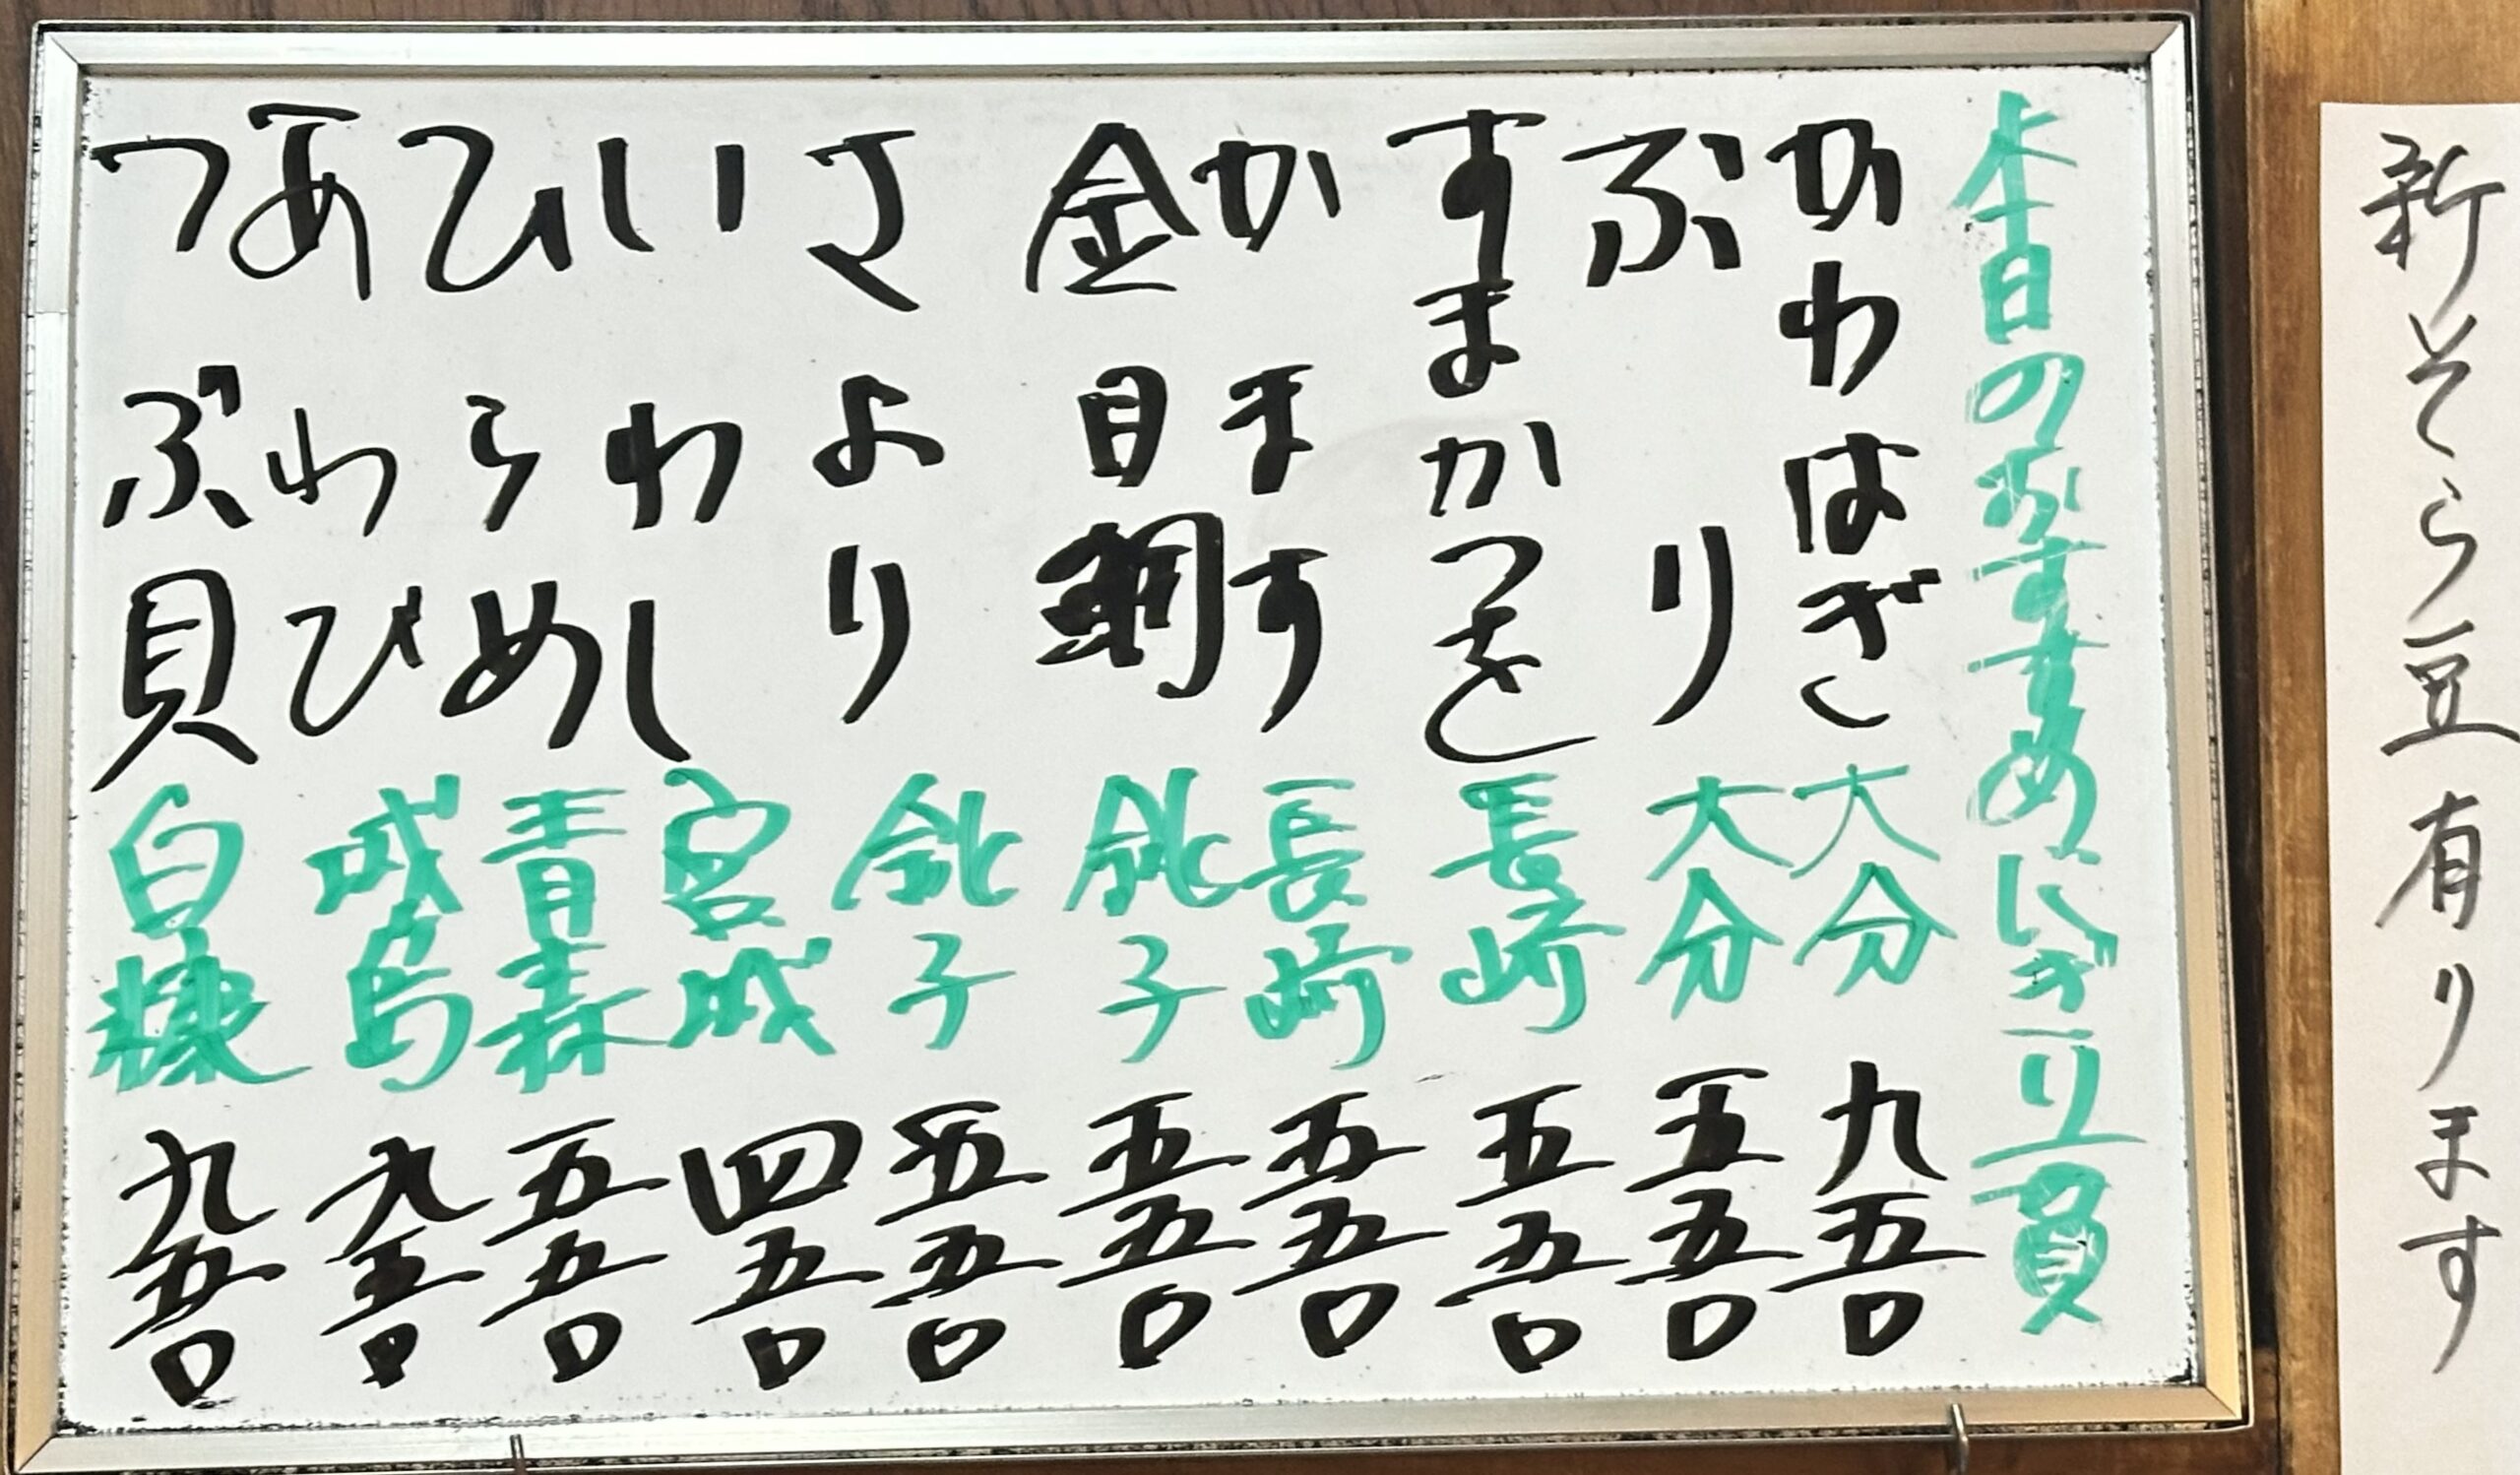 新そら豆有ります
本日のおすすめにぎり一貫
かわはぎ 大分 九五〇
ぶり 大分 五五〇
すまかつを 長崎 五五〇
かます 長崎 五五〇
金目鯛 銚子 五五〇
さより 銚子 五五〇
いわし 宮城 四五〇
ひらめ 青森 五五〇
あわび 城島 九五〇
つぶ貝 白糠 九五〇